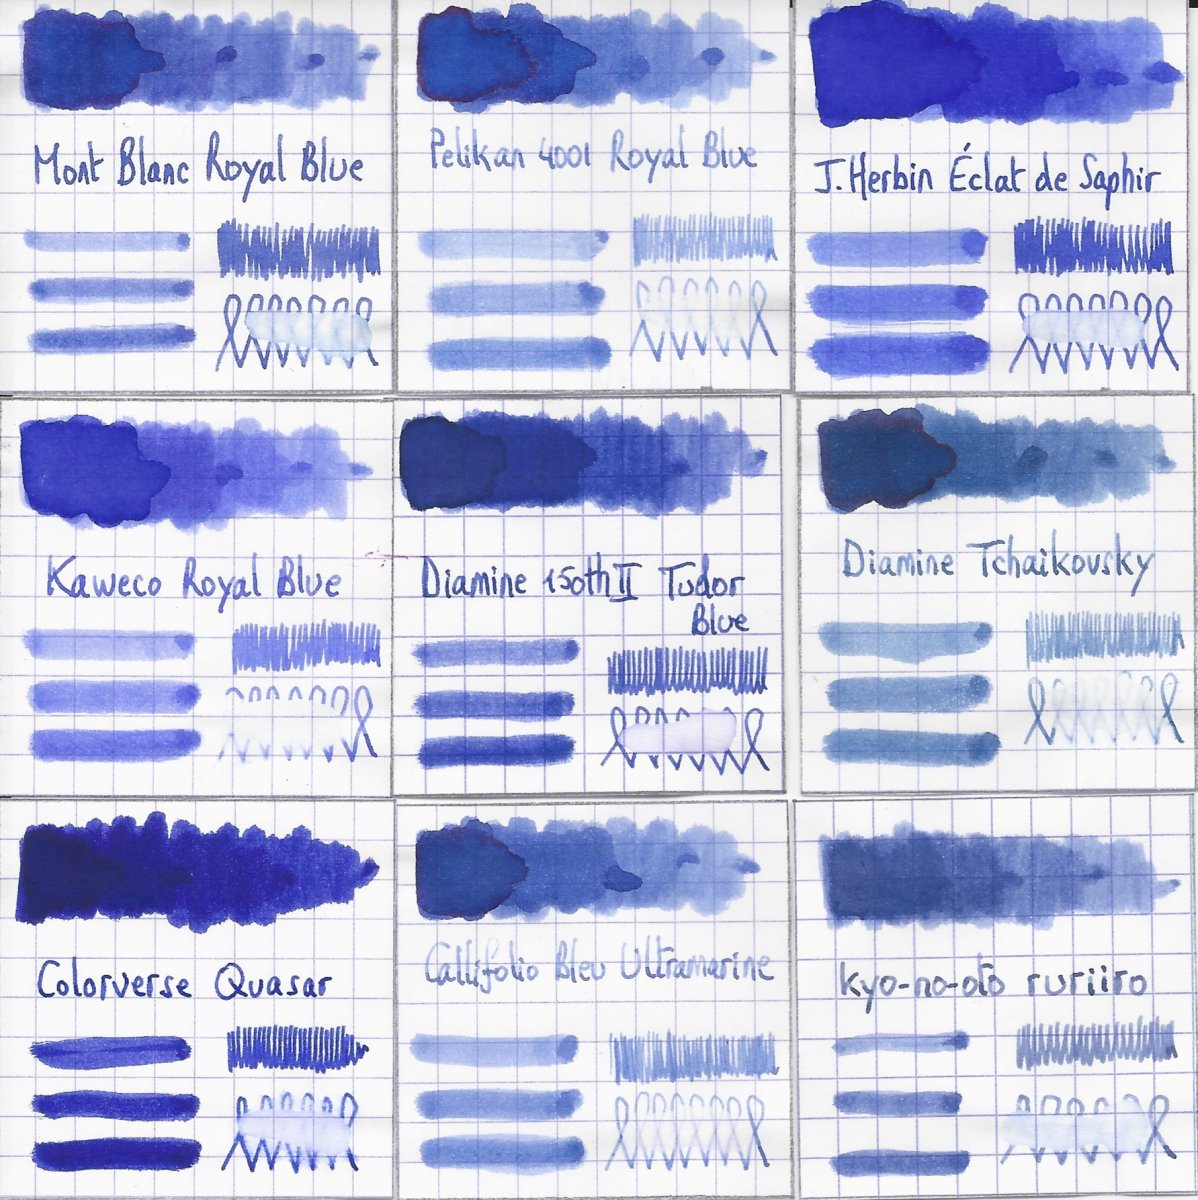 Mont Blanc Royal Blue
Pelikan 4001 Royal Blue
J. Herbin Éclat de Saphir
Kaweco Royal Blue
Diamine 150th II Tudor
Blue
Diamine Tchaikovsky
Colorverse Quasar
Callifolio Bleu Ultramarine
kyo-no-oto ruriiro